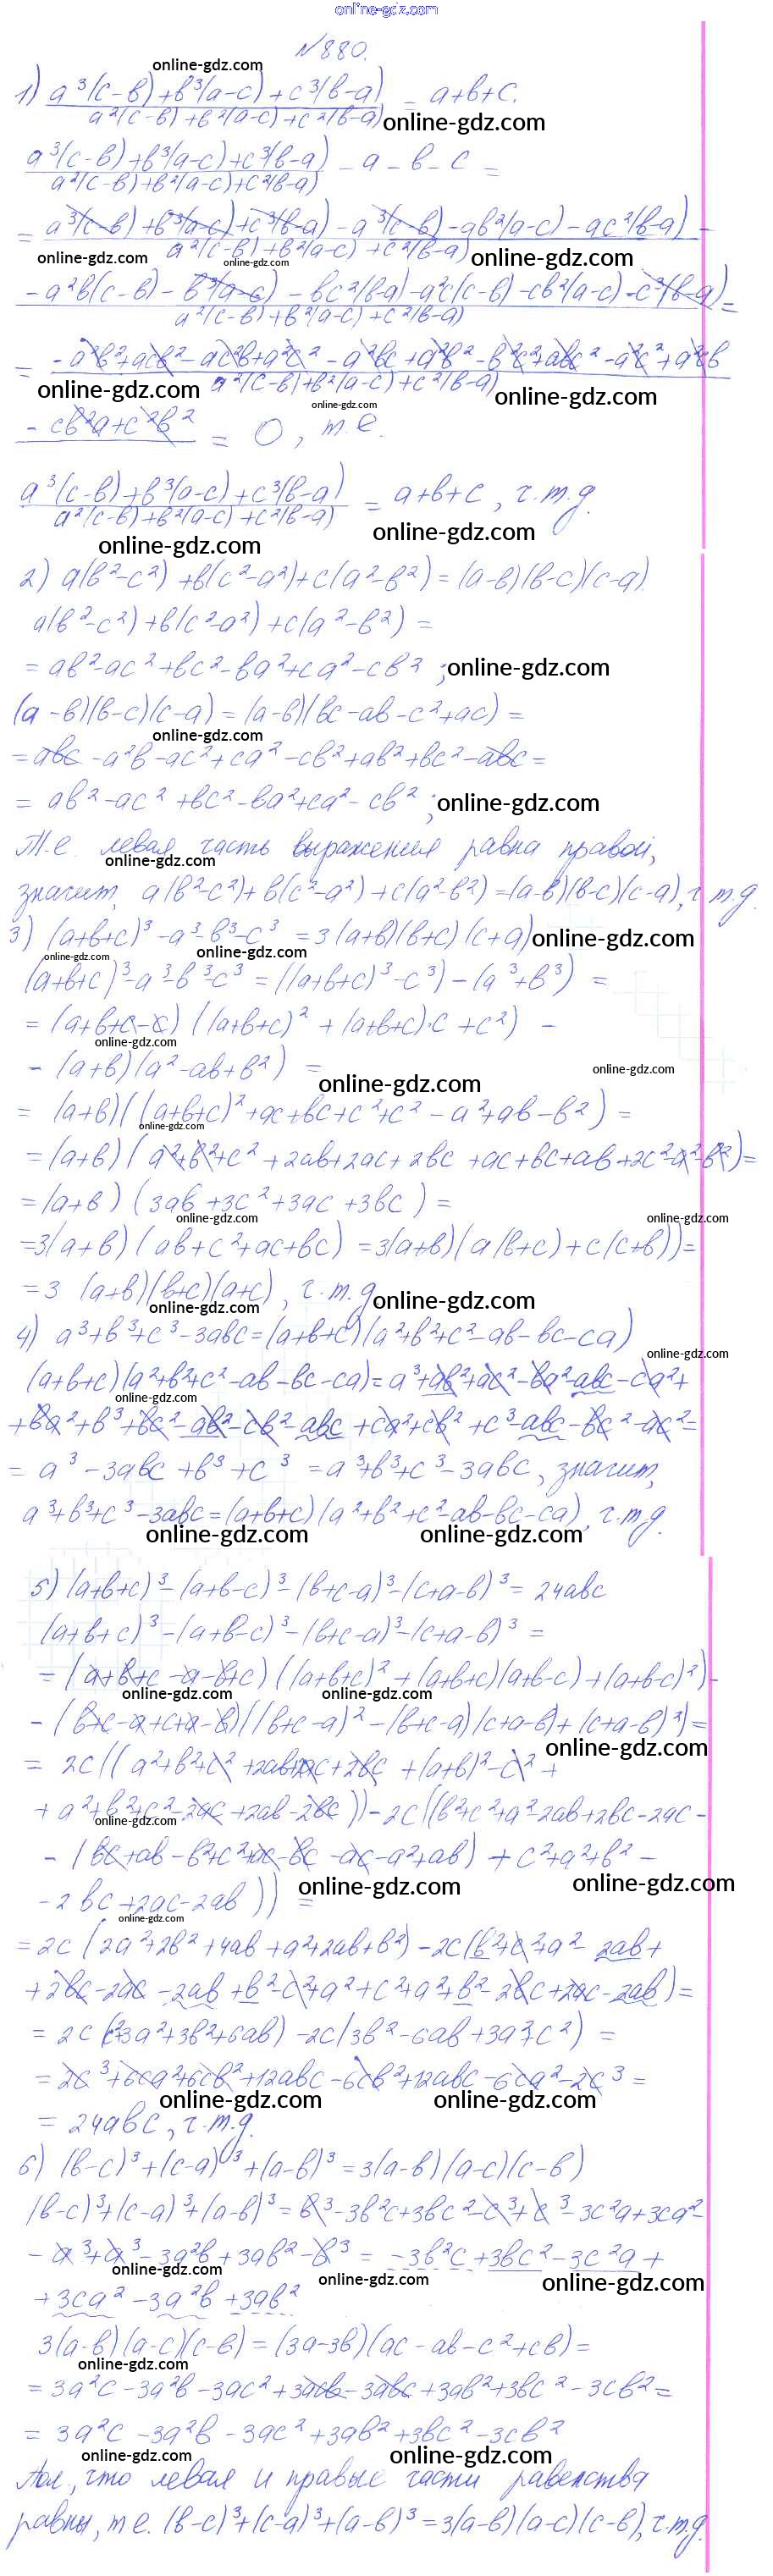 online-gdz.com
№880.
online-gdz.com
1) a³(c-b)+b³(a-c)+c³(b-a) / a²(c-b)+b²(a-c)+c²(b-a) = a+b+c.
online-gdz.com
a³(c-b)+b³(a-c)+c³(b-a) / a²(c-b)+b²(a-c)+c²(b-a) - a - b - c =
= a³(c-b)+b³(a-c)+c³(b-a)-a³(c-b)-ab²(a-c)-ac²(b-a) / a²(c-b)+b²(a-c)+c²(b-a) -
online-gdz.com online-gdz.com online-gdz.com
-a²b(c-b)-b³(a-c)-bc²(b-a)-a²c(c-b)-cb²(a-c)-c³(b-a) / a²(c-b)+b²(a-c)+c²(b-a) =
= -a²b²+acb²-ac²b+a²c²-a²bc+a²b²-b²c²+abc²-a²c²+a²cb / a²(c-b)+b²(a-c)+c²(b-a)
online-gdz.com online-gdz.com online-gdz.com
-cb²a+c²b² = 0, т.е.
a³(c-b)+b³(a-c)+c³(b-a) / a²(c-b)+b²(a-c)+c²(b-a) = a+b+c, ч.т.д.
online-gdz.com online-gdz.com
2) a(b²-c²)+b(c²-a²)+c(a²-b²)=(a-b)(b-c)(c-a).
a(b²-c²)+b(c²-a²)+c(a²-b²)=
= ab²-ac²+bc²-ba²+ca²-cb²; online-gdz.com
(a-b)(b-c)(c-a)=(a-b)(bc-ab-c²+ac)=
online-gdz.com
=abc-a²b-ac²+ca²-cb²+ab²+bc²-abc=
= ab²-ac²+bc²-ba²+ca²-cb²; online-gdz.com
Т.е. левая часть выражения равна правой,
online-gdz.com
значит, a(b²-c²)+b(c²-a²)+c(a²-b²)=(a-b)(b-c)(c-a), ч.т.д.
3) (a+b+c)³-a³-b³-c³=3(a+b)(b+c)(c+a) online-gdz.com
online-gdz.com online-gdz.com
(a+b+c)³-a³-b³-c³=((a+b+c)³-c³)-(a³+b³)=
=(a+b+c-c)((a+b+c)²+(a+b+c)·c+c²)-
online-gdz.com
-(a+b)(a²-ab+b²)=
online-gdz.com online-gdz.com
= (a+b)((a+b+c)²+ac+bc+c²+c²-a²+ab-b²)=
online-gdz.com
=(a+b)(a²+b²+c²+2ab+2ac+2bc+ac+bc+ab+2c²-a²-b²)=
=(a+b)(3ab+3c²+3ac+3bc)=
online-gdz.com online-gdz.com
=3(a+b)(ab+c²+ac+bc)=3(a+b)(a(b+c)+c(c+b))=
=3(a+b)(b+c)(a+c), ч.т.д.
online-gdz.com online-gdz.com
4) a³+b³+c³-3abc=(a+b+c)(a²+b²+c²-ab-bc-ca)
online-gdz.com
(a+b+c)(a²+b²+c²-ab-bc-ca)=a³+ab²+ac²-ba²-abc-ca²+
online-gdz.com
+ba²+b³+bc²-ab²-cb²-abc+ca²+cb²+c³-abc-bc²-ac²=
= a³-3abc+b³+c³=a³+b³+c³-3abc, значит,
a³+b³+c³-3abc=(a+b+c)(a²+b²+c²-ab-bc-ca), ч.т.д.
online-gdz.com online-gdz.com
5) (a+b+c)³-(a+b-c)³-(b+c-a)³-(c+a-b)³=24abc
(a+b+c)³-(a+b-c)³-(b+c-a)³-(c+a-b)³=
=(a+b+c-a-b+c)((a+b+c)²+(a+b+c)(a+b-c)+(a+b-c)²)-
online-gdz.com online-gdz.com
-(b+c-a+c+a-b)((b+c-a)²-(b+c-a)(c+a-b)+(c+a-b)²)=
online-gdz.com
= 2c((a²+b²+c²+2ab+2ac+2bc+(a+b)²-c²+
+a²+b²+c²-2ac+2ab-2bc))-2c((b²+c²+a²-2ab+2bc-2ac-
online-gdz.com
-(bc+ab-b²+c²+ac-bc-ac-a²+ab)+c²+a²+b²-
online-gdz.com online-gdz.com
-2bc+2ac-2ab))=
online-gdz.com
=2c(2a²+2b²+4ab+a²+2ab+b²)-2c(b²+c²+a²-2ab+
+2bc-2ac-2ab+b²-c²+a²+c²+a²+b²-2bc+2ac-2ab)=
= 2c(c²+3a²+3b²+6ab)-2c(3b²-6ab+3a²+c²)=
=2c³+6ca²+6cb²+12abc-6cb²+12abc-6ca²-2c³=
online-gdz.com online-gdz.com
= 24abc, ч.т.д.
6) (b-c)³+(c-a)³+(a-b)³=3(a-b)(a-c)(c-b)
(b-c)³+(c-a)³+(a-b)³=b³-3b²c+3bc²-c³+c³-3c²a+3ca²-
-a³+a³-3a²b+3ab²-b³=-3b²c+3bc²-3c²a+
online-gdz.com online-gdz.com online-gdz.com
+3ca²-3a²b+3ab²
3(a-b)(a-c)(c-b)=(3a-3b)(ac-ab-c²+cb)=
online-gdz.com
=3a²c-3a²b-3ac²+3acb-3abc+3ab²+3bc²-3cb²=
= 3a²c-3a²b-3ac²+3ab²+3bc²-3cb²
online-gdz.com online-gdz.com
Пол., что левая и правые части равенства
равны, т.е. (b-c)³+(c-a)³+(a-b)³=3(a-b)(a-c)(c-b), ч.т.д.